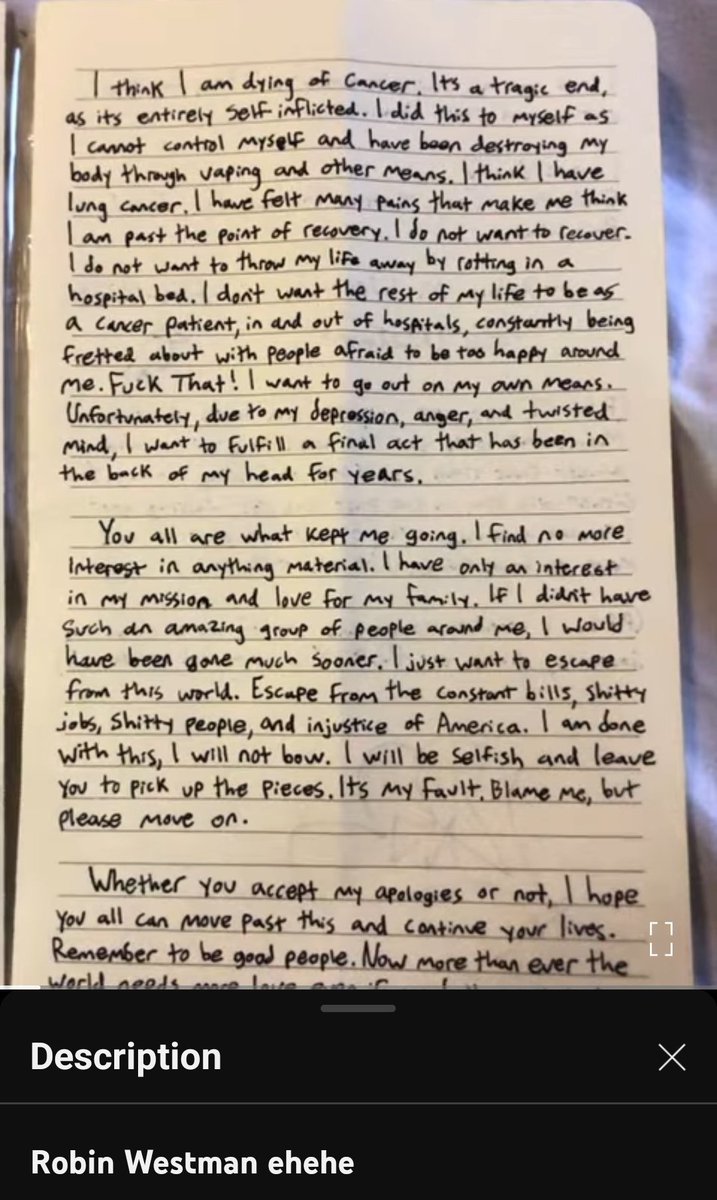 I think I am dying of cancer. Its a tragic end,
as its entirely self inflicted. I did this to myself as
I cannot control myself and have been destroying my
body through vaping and other means. I think I have
lung cancer. I have felt many pains that make me think
I am past the point of recovery. I do not want to recover.
I do not want to throw my life away by rotting in a
hospital bed. I don't want the rest of my life to be as
a cancer patient, in and out of hospitals, constantly being
fretted about with people afraid to be too happy around
me. Fuck That! I want to go out on my own means.
Unfortunately, due to my depression, anger, and twisted
mind, I want to fulfill a final act that has been in
the back of my head for years.
You all are what kept me going. I find no more
interest in anything material. I have only an interest
in my mission and love for my family. If I didn't have
such an amazing group of people around me, I would
have been gone much sooner. I just want to escape
from this world. Escape from the constant bills, shitty
jobs, shitty people, and injustice of America. I am done
with this, I will not bow. I will be selfish and leave
you to pick up the pieces. Its my fault. Blame me, but
please move on.
Whether you accept my apologies or not, I hope
you all can move past this and continue your lives.
Remember to be good people. Now more than ever the
world needs more love
Description
Robin Westman ehehe